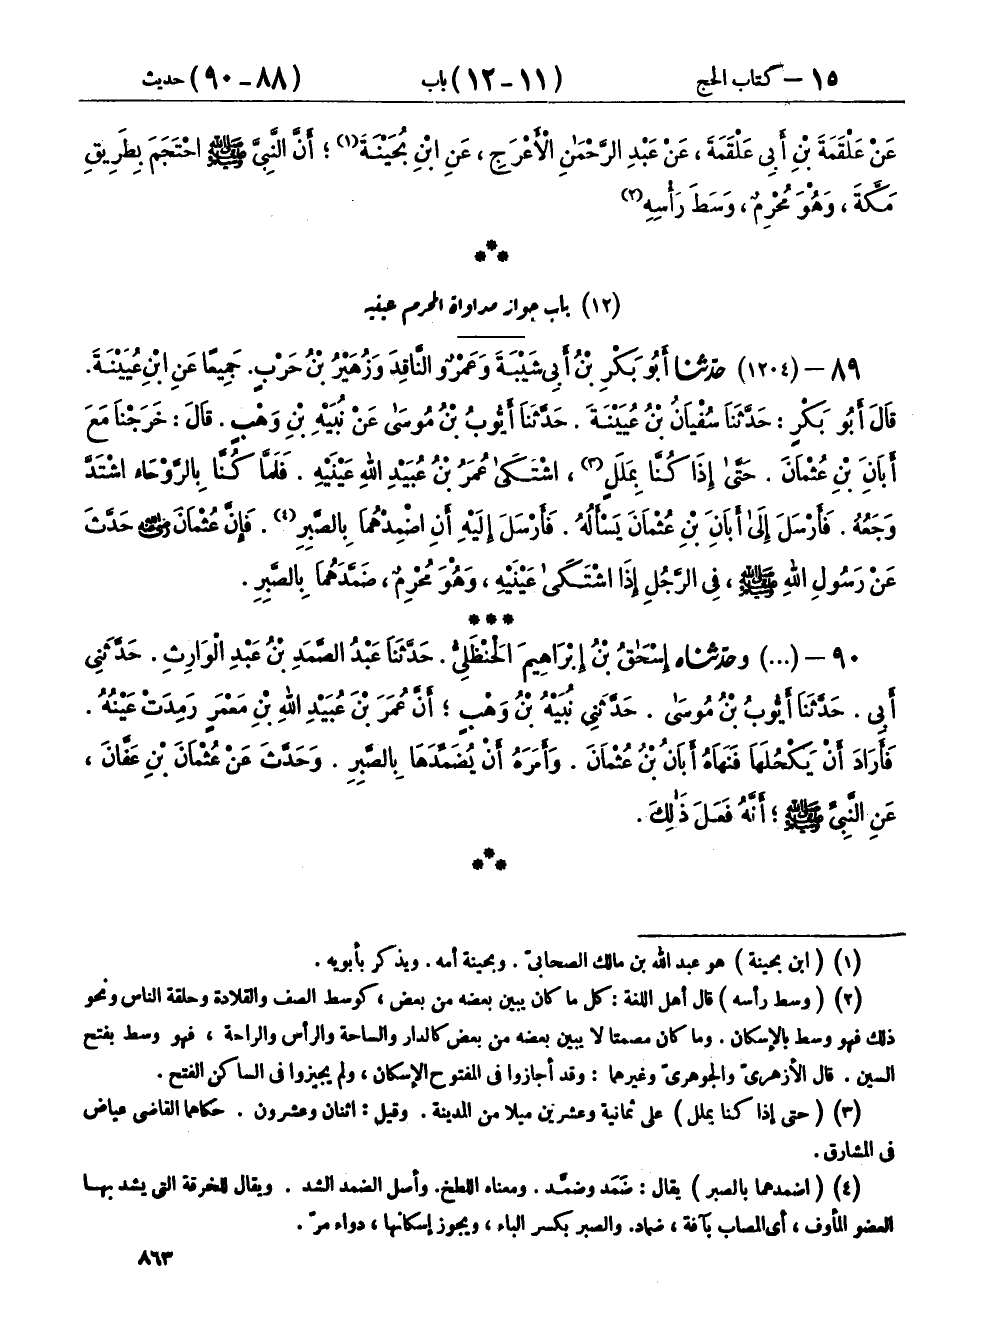 ١٥ – كتاب الحج (١١ - ١٢) باب (٨٨ - ٩٠) حديث
عَنْ عَلْقَمَةَ بْنِ أَبِي عَلْقَمَةَ ، عَنْ عَبْدِ الرَّحْمٰنِ الْأَعْرَجِ ، عَنِ ابْنِ بُحَيْنَةَ(١) ؛ أَنَّ النَّبِيَّ ﷺ احْتَجَمَ بِطَرِيقِ
مَكَّةَ ، وَهُوَ مُحْرِمٌ ، وَسَطَ رَأْسِهِ(٢)
***
(١٢) باب جواز مداواة المحرم عينيه
٨٩ – (١٢٠٤) حدّثنا أَبُو بَكْرِ بْنُ أَبِي شَيْبَةَ وَعَمْرٌو النَّاقِدُ وَزُهَيْرُ بْنُ حَرْبٍ. جَمِيعًا عَنِ ابْنِ عُيَيْنَةَ.
قَالَ أَبُو بَكْرٍ : حَدَّثَنَا سُفْيَانُ بْنُ عُيَيْنَةَ . حَدَّثَنَا أَيُّوبُ بْنُ مُوسَىٰ عَنْ نُبَيْهِ بْنِ وَهْبٍ . قَالَ : خَرَجْنَا مَعَ
أَبَانَ بْنِ عُثْمَانَ . حَتَّىٰ إِذَا كُنَّا بِمَلَلٍ(٣) ، اشْتَكَىٰ عُمَرُ بْنُ عُبَيْدِ اللهِ عَيْنَيْهِ . فَلَمَّا كُنَّا بِالرَّوْحَاء اشْتَدَّ
وَجَعُهُ . فَأَرْسَلَ إِلَىٰ أَبَانَ بْنِ عُثْمَانَ يَسْأَلُهُ . فَأَرْسَلَ إِلَيْهِ أَنِ اضْمِدْهُمَا بِالصَّبِرِ(٤) . فَإِنَّ عُثْمَانَ ﵁ حَدَّثَ
عَنْ رَسُولِ اللهِ ﷺ ، فِي الرَّجُلِ إِذَا اشْتَكَىٰ عَيْنَيْهِ ، وَهُوَ مُحْرِمٌ ، ضَمَّدَهُمَا بِالصَّبِرِ .
***
٩٠ – (...) وحدّثناه إِسْحَٰقُ بْنُ إِبْرَاهِيمَ الْحَنْظَلِيُّ . حَدَّثَنَا عَبْدُ الصَّمَدِ بْنُ عَبْدِ الْوَارِثِ . حَدَّثَنِي
أَبِي . حَدَّثَنَا أَيُّوبُ بْنُ مُوسَىٰ . حَدَّثَنِي نُبَيْهُ بْنُ وَهْبٍ ؛ أَنَّ عُمَرَ بْنَ عُبَيْدِ اللهِ بْنِ مَعْمَرٍ رَمِدَتْ عَيْنُهُ .
فَأَرَادَ أَنْ يَكْحُلَهَا فَنَهَاهُ أَبَانُ بْنُ عُثْمَانَ . وَأَمَرَهُ أَنْ يُضَمِّدَهَا بِالصَّبِرِ . وَحَدَّثَ عَنْ عُثْمَانَ بْنِ عَفَّانَ ،
عَنِ النَّبِيِّ ﷺ ؛ أَنَّهُ فَعَلَ ذَٰلِكَ .
***
(١) ( ابن بحينة ) هو عبد الله بن مالك الصحابىّ . وبحينة أمه . ويذكر بأبويه .
(٢) ( وسط رأسه ) قال أهل اللغة : كل ما كان يبين بعضه من بعض ، كوسط الصف والقلادة وحلقة الناس ونحو
ذلك فهو وسط بالإسكان . وما كان مصمتا لا يبين بعضه من بعض كالدار والساحة والرأس والراحة ، فهو وسط بفتح
السين . قال الأزهرىّ والجوهرىّ وغيرهما : وقد أجازوا فى المفتوح الإسكان ، ولم يجيزوا فى الساكن الفتح .
(٣) ( حتى إذا كنا بملل ) على ثمانية وعشرين ميلا من المدينة . وقيل : اثنان وعشرون . حكاها القاضى عياض
فى المشارق .
(٤) ( اضمدهما بالصبر ) يقال : ضَمَد وضمَّد . ومعناه اللطخ. وأصل الضمد الشد . ويقال للخرقة التى يشد بهـا
العضو المأوف ، أى المصاب بآفة ، ضماد. والصبر بكسر الباء ، ويجوز إسكانها ، دواء مرّ .
٨٦٣